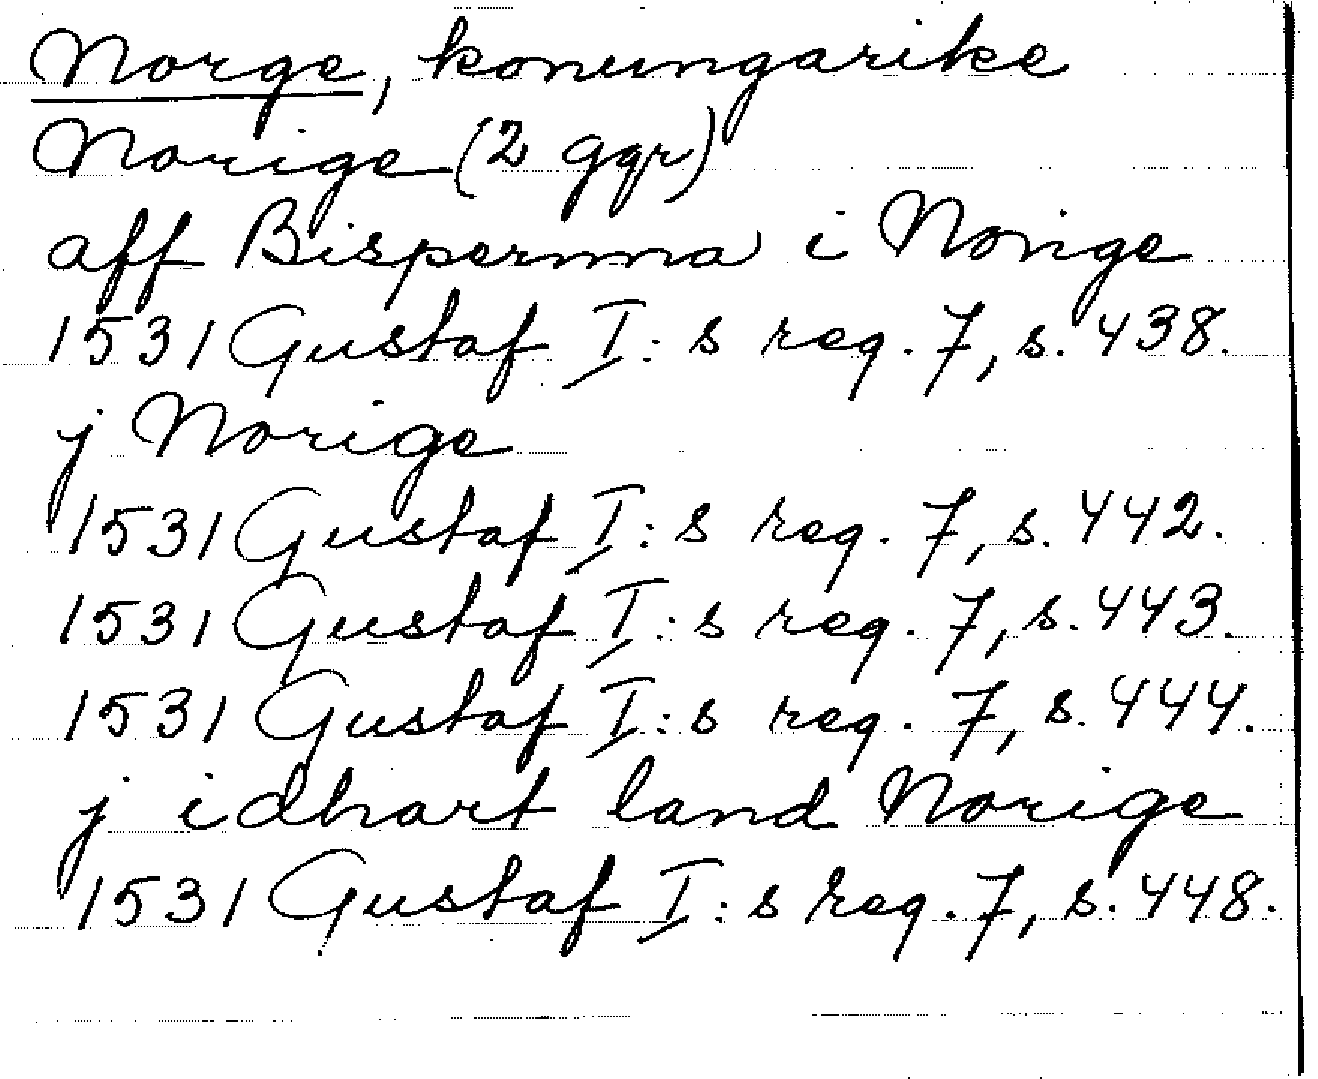 Norge, konungarike
Norige (2 ggr)
aff Bispernna i Norige
1531 Gustaf I:s reg. 7, s. 438.
j Norige
1531 Gustaf I:s reg. 7, s. 442.
1531 Gustaf I:s reg. 7, s. 443.
1531 Gustaf I:s reg. 7, s. 444.
j idhart land Norige
1531 Gustaf I:s reg. 7, s. 448.